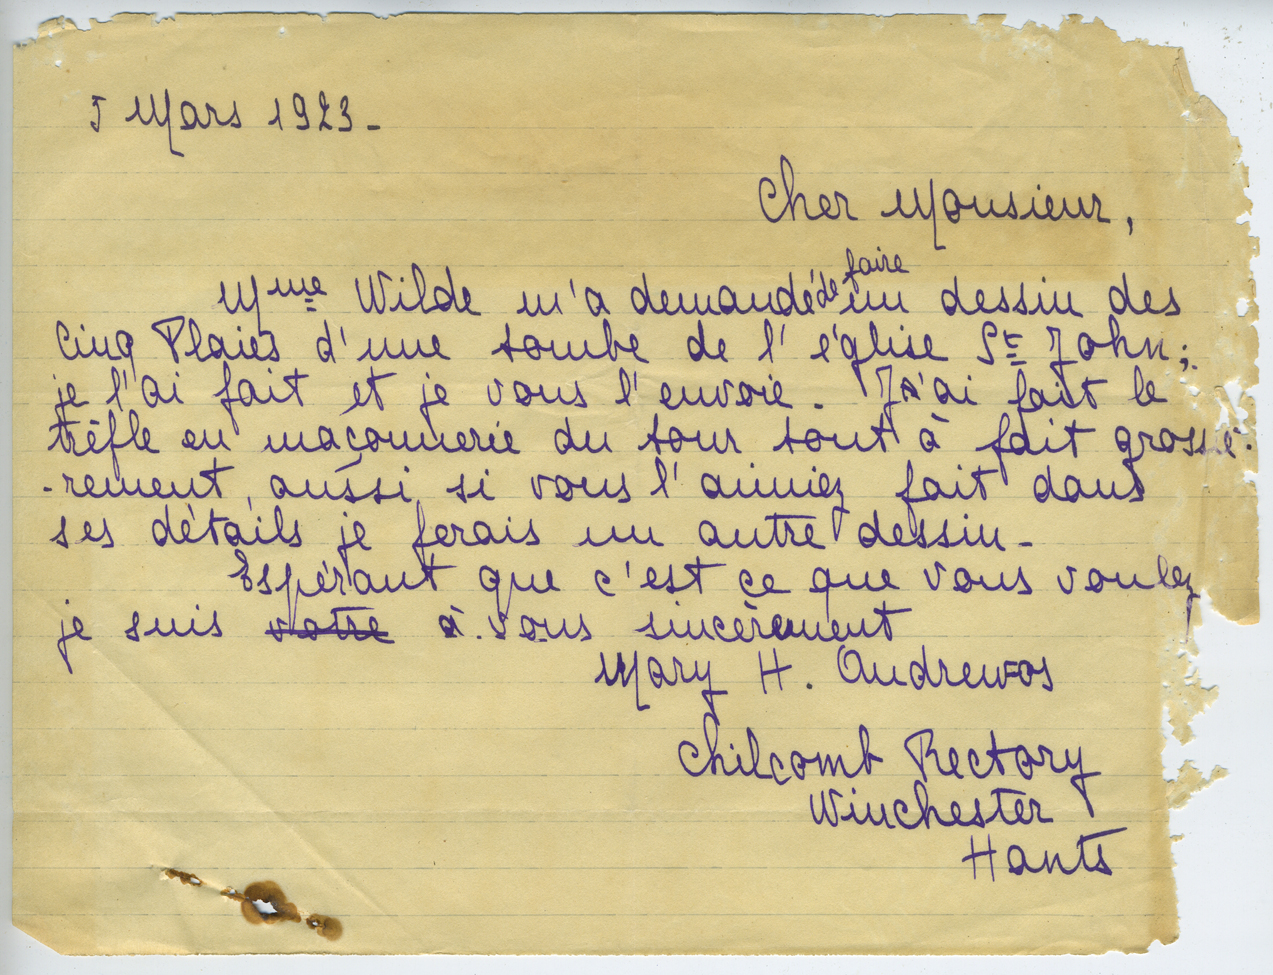 5 Mars 1923-
Cher Monsieur,
Mme Wilde m'a demandé de faire un dessin des
Cinq Plaies d'une tombe de l'église St John;
je l'ai fait et je vous l'envoie. J'ai fait le
trèfle en maçonnerie du tour tout à fait grossiè-
-rement, aussi, si vous l'aimiez fait dans
ses détails je ferais un autre dessin-
Espérant que c'est ce que vous voulez
je suis votre à vous sincèrement
Mary H. Andrewes
Chilcomb Rectory
Winchester
Hants